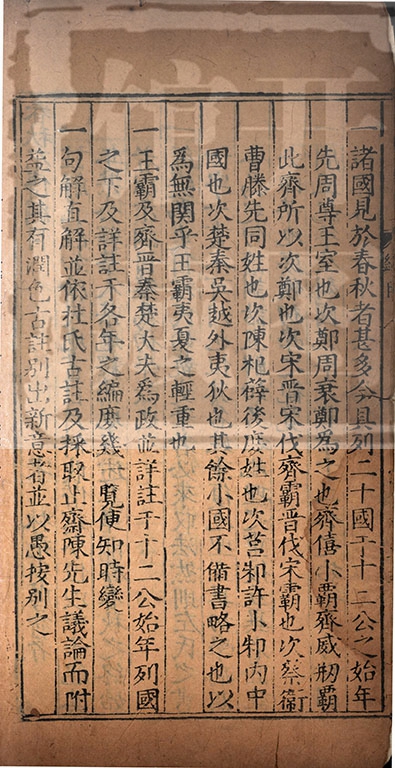 一諸國見於春秋者甚多今具列二十國于十二公之始年
先周尊王室也次鄭周衰鄭為之也齊僖小覇齊威刱覇
此齊所以次鄭也次宋晉宋伐齊霸晉伐宋霸也次蔡衛
曹滕先同姓也次陳杞薛後庶姓也次莒邾許小邾內中
國也次楚秦吳越外夷狄也其餘小國不備書略之也以
為無関乎王霸夷夏之輕重也
一王霸及齊晉秦楚大夫為政並詳註于十二公始年列國
之下及詳註于各年之編庶幾一覽便知時變
一句解直解並依杜氏古註及採取止齋陳先生議論而附
益之其有潤色古註別出新意者並以愚按別之